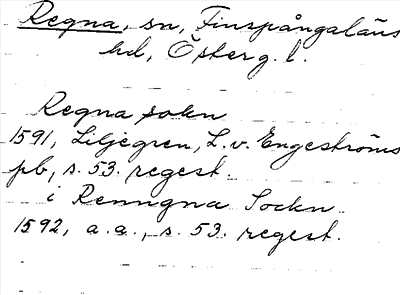 Regna, sn, Finspångaläns
hd, Österg. l.
Regna sokn
1591, Liljegren, L. v. Engeströms
pb, s. 53. regest.
i Renngna Sockn
1592, a. a., s. 53. regest.